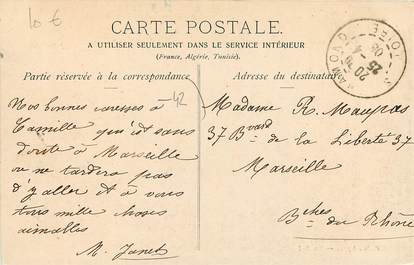 10 €
CARTE POSTALE.
A UTILISER SEULEMENT DANS LE SERVICE INTÉRIEUR
(France, Algérie, Tunisie).
Partie réservée à la correspondance
Adresse du destinataire
42
Nos bonnes caresses à
Camille qui est sans
doute à Marseille
ou ne tardera pas
d'y aller et à vous
tous mille choses
aimables
M. Janet
Madame R. Maupas
37 Bvard de la Liberté 37
Marseille
Bches du Rhône